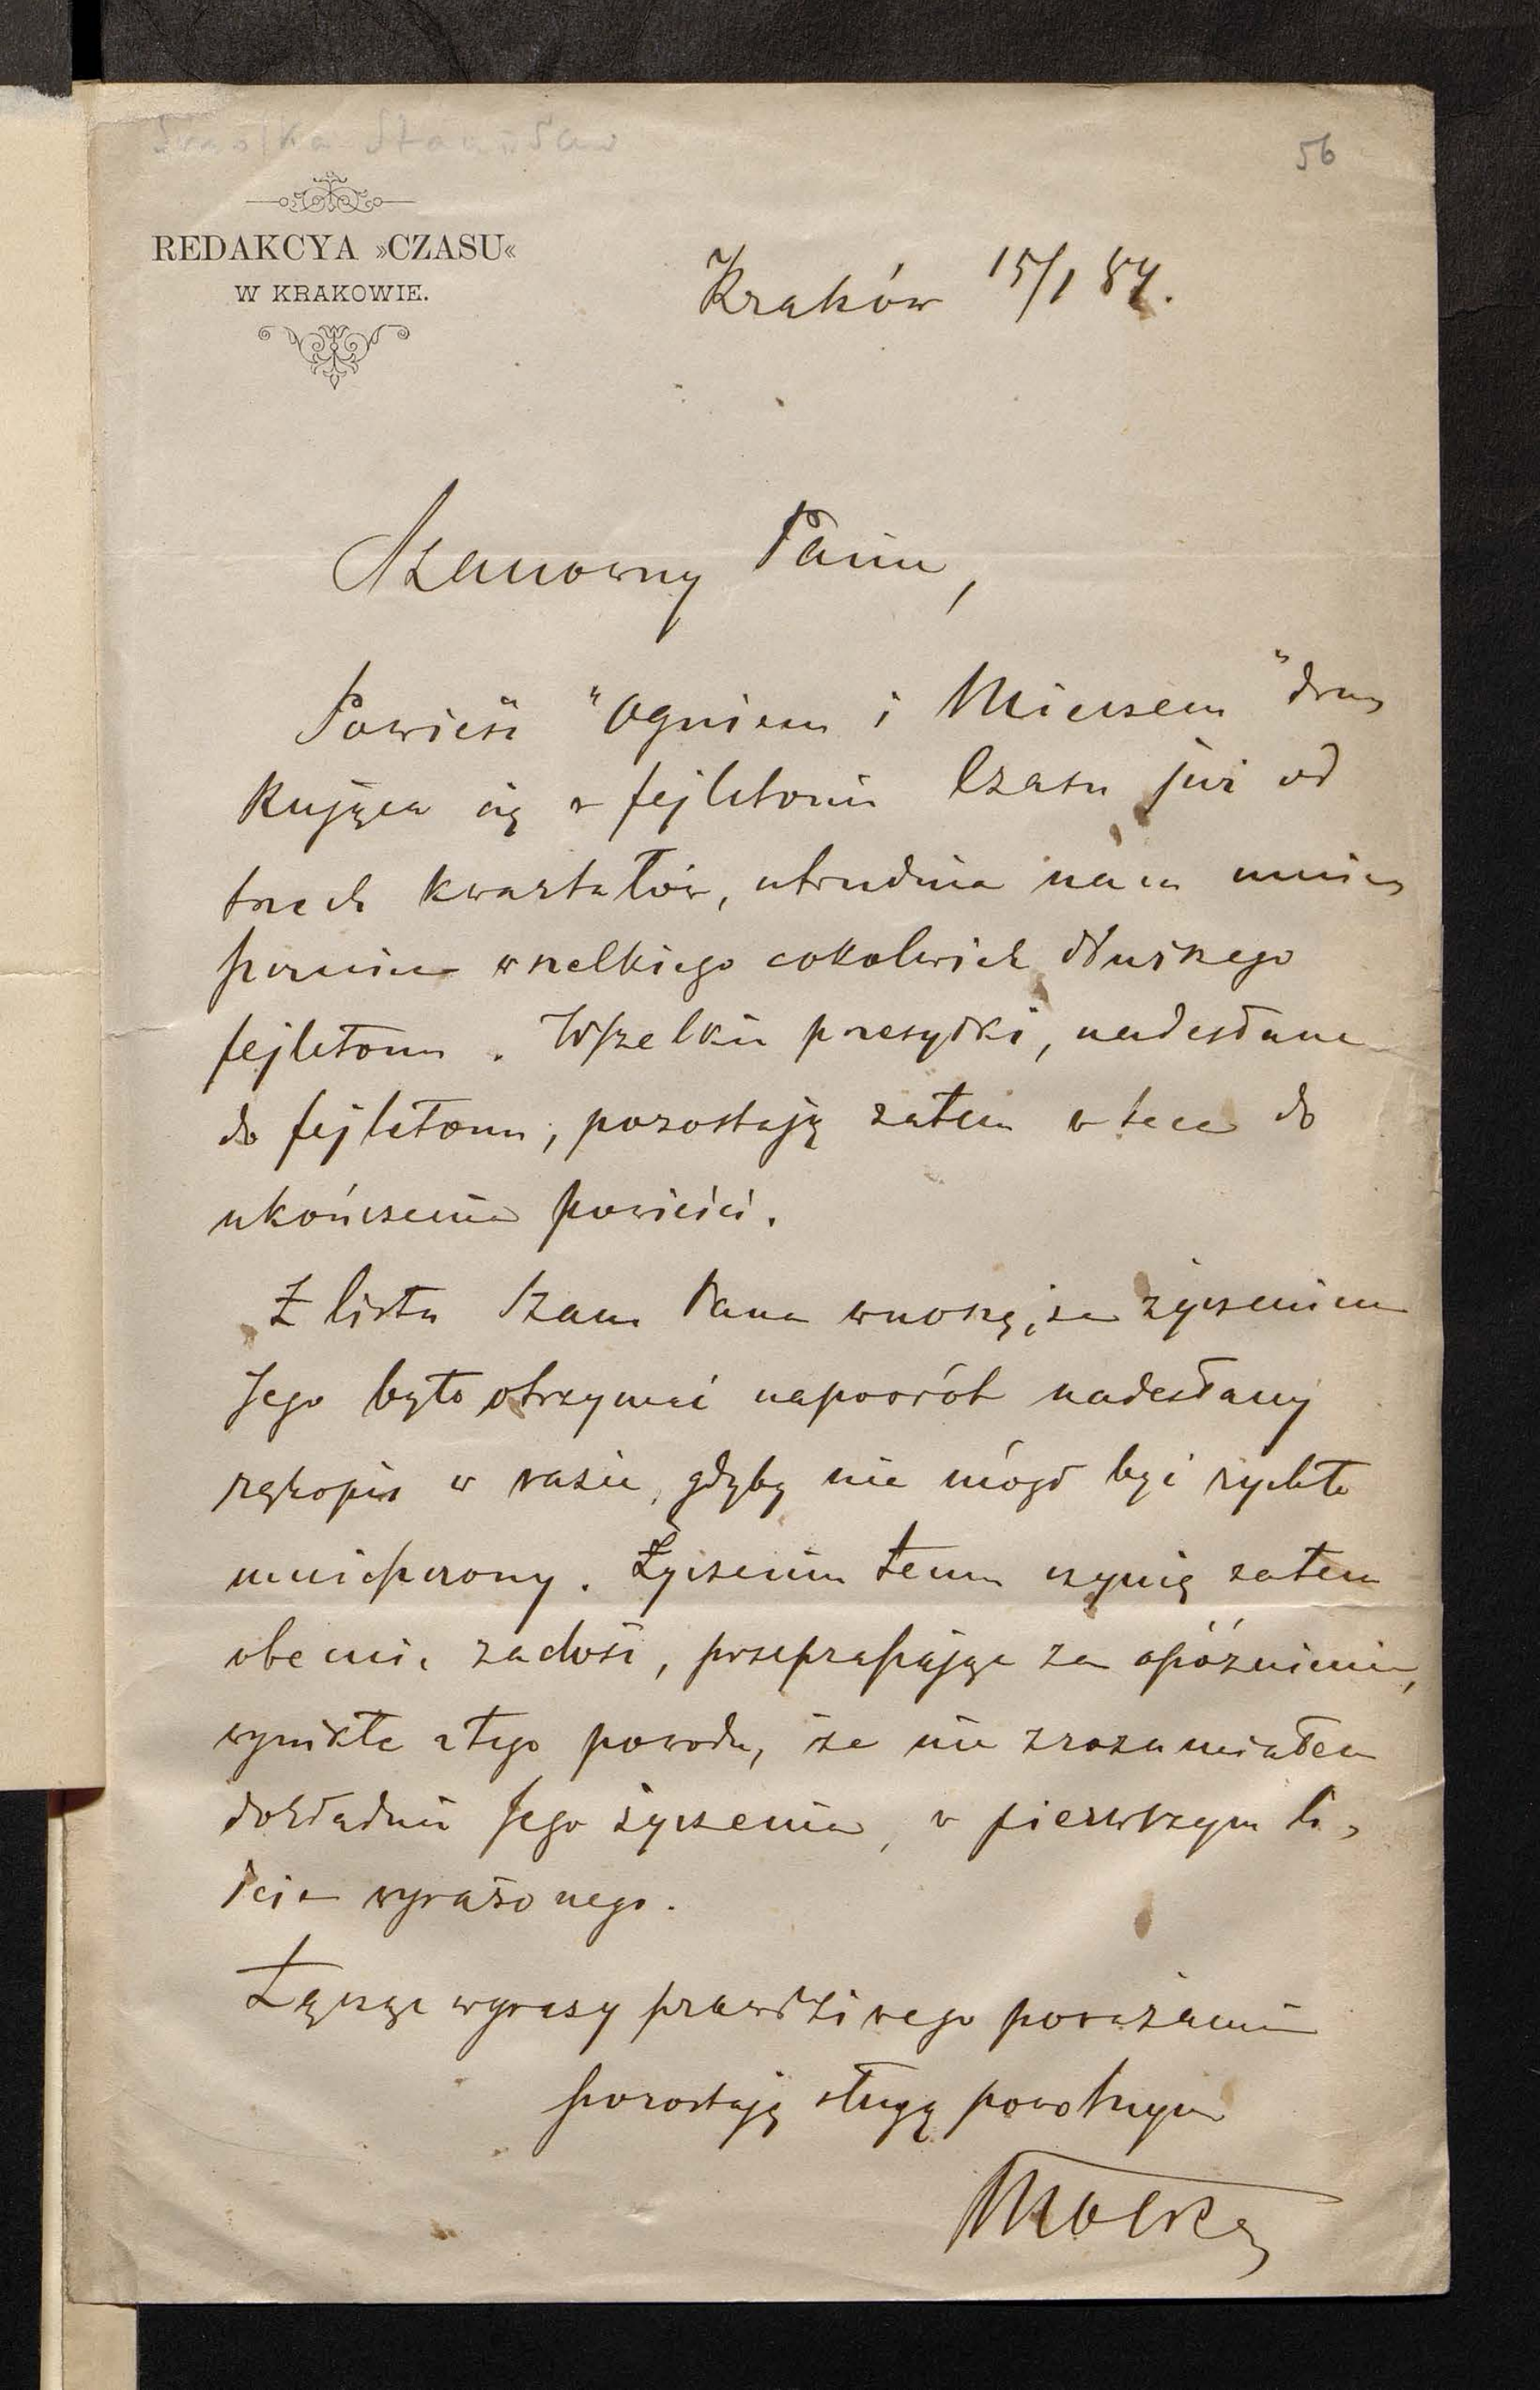 Smolka Stanisław
56
REDAKCYA »CZASU«
W KRAKOWIE.
Kraków 15/1 84.
Szanowny Panie,
Powieść "Ogniem i Mieczem" dru-
kująca się w fejletonie Czasu już od
trzech kwartałów, utrudnia nam umie-
szczenie wszelkiego cokolwiek dłuższego
fejletonu. Wszelkie przesyłki, nadesłane
do fejletonu, pozostają zatem w tece do
ukończenia powieści.
Z listu Szan Pana wnoszę, że życzeniem
Jego było otrzymać napowrót nadesłany
rękopis w razie, gdyby nie mógł być rychło
umieszczony. Życzeniu temu czynię zatem
obecnie zadość, przepraszając za opóźnienie,
wynikłe z tego powodu, że nie zrozumiałem
dokładnie Jego życzenia, w pierwszym li-
ście wyrażonego.
Łącząc wyrazy prawdziwego poważania
pozostaję sługą powolnym
Smolka